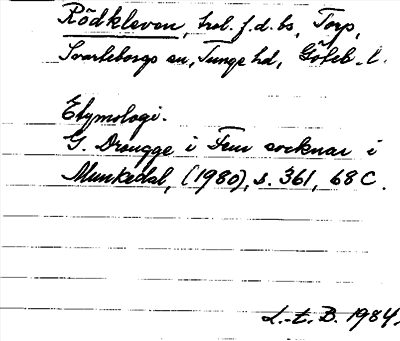 Rödkleven, trol. f.d. bs, Torp,
Svarteborgs sn, Tunge hd, Göteb. l.
Etymologi.
G. Drougge i Fem socknar i
Munkedal, (1980), s. 361, 68 C.
L.-t. B. 1984.